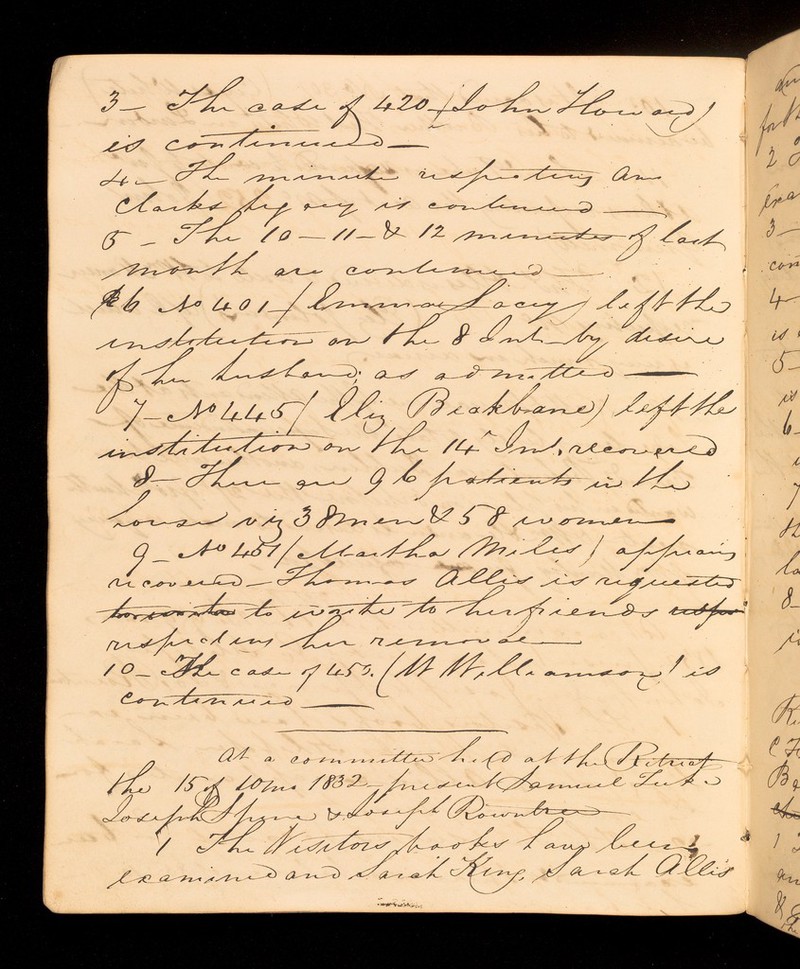 3 – The case of 420 – (John Howard)
is continued –
4 – The minute respecting Ann
Clarks legacy is continued –
5 – The 10 – 11 – & 12 minutes of last
month are continued –
6 No 401 – (Emma Lacey) left the
institution on the 8 Inst – by desire
of her husband; as admitted –
7 – No 445 (Eliz Beakbane) left the
institution on the 14 Inst. recovered
8 – There are 96 patients in the
house viz 38 men & 58 women
9 – No 451 (Martha Miles) appears
recovered – Thomas Allis is requested
to write to her friends
respecting her removal
10 – The case of 453. (W Williamson) is
continued –
At a committee held at the Retreat
the 15 of 10mo 1832 – present Samuel Tuke
Joseph Spence & Joseph Rowntree
1 The Visitors books have been
examined and Sarah King, Sarah Allis